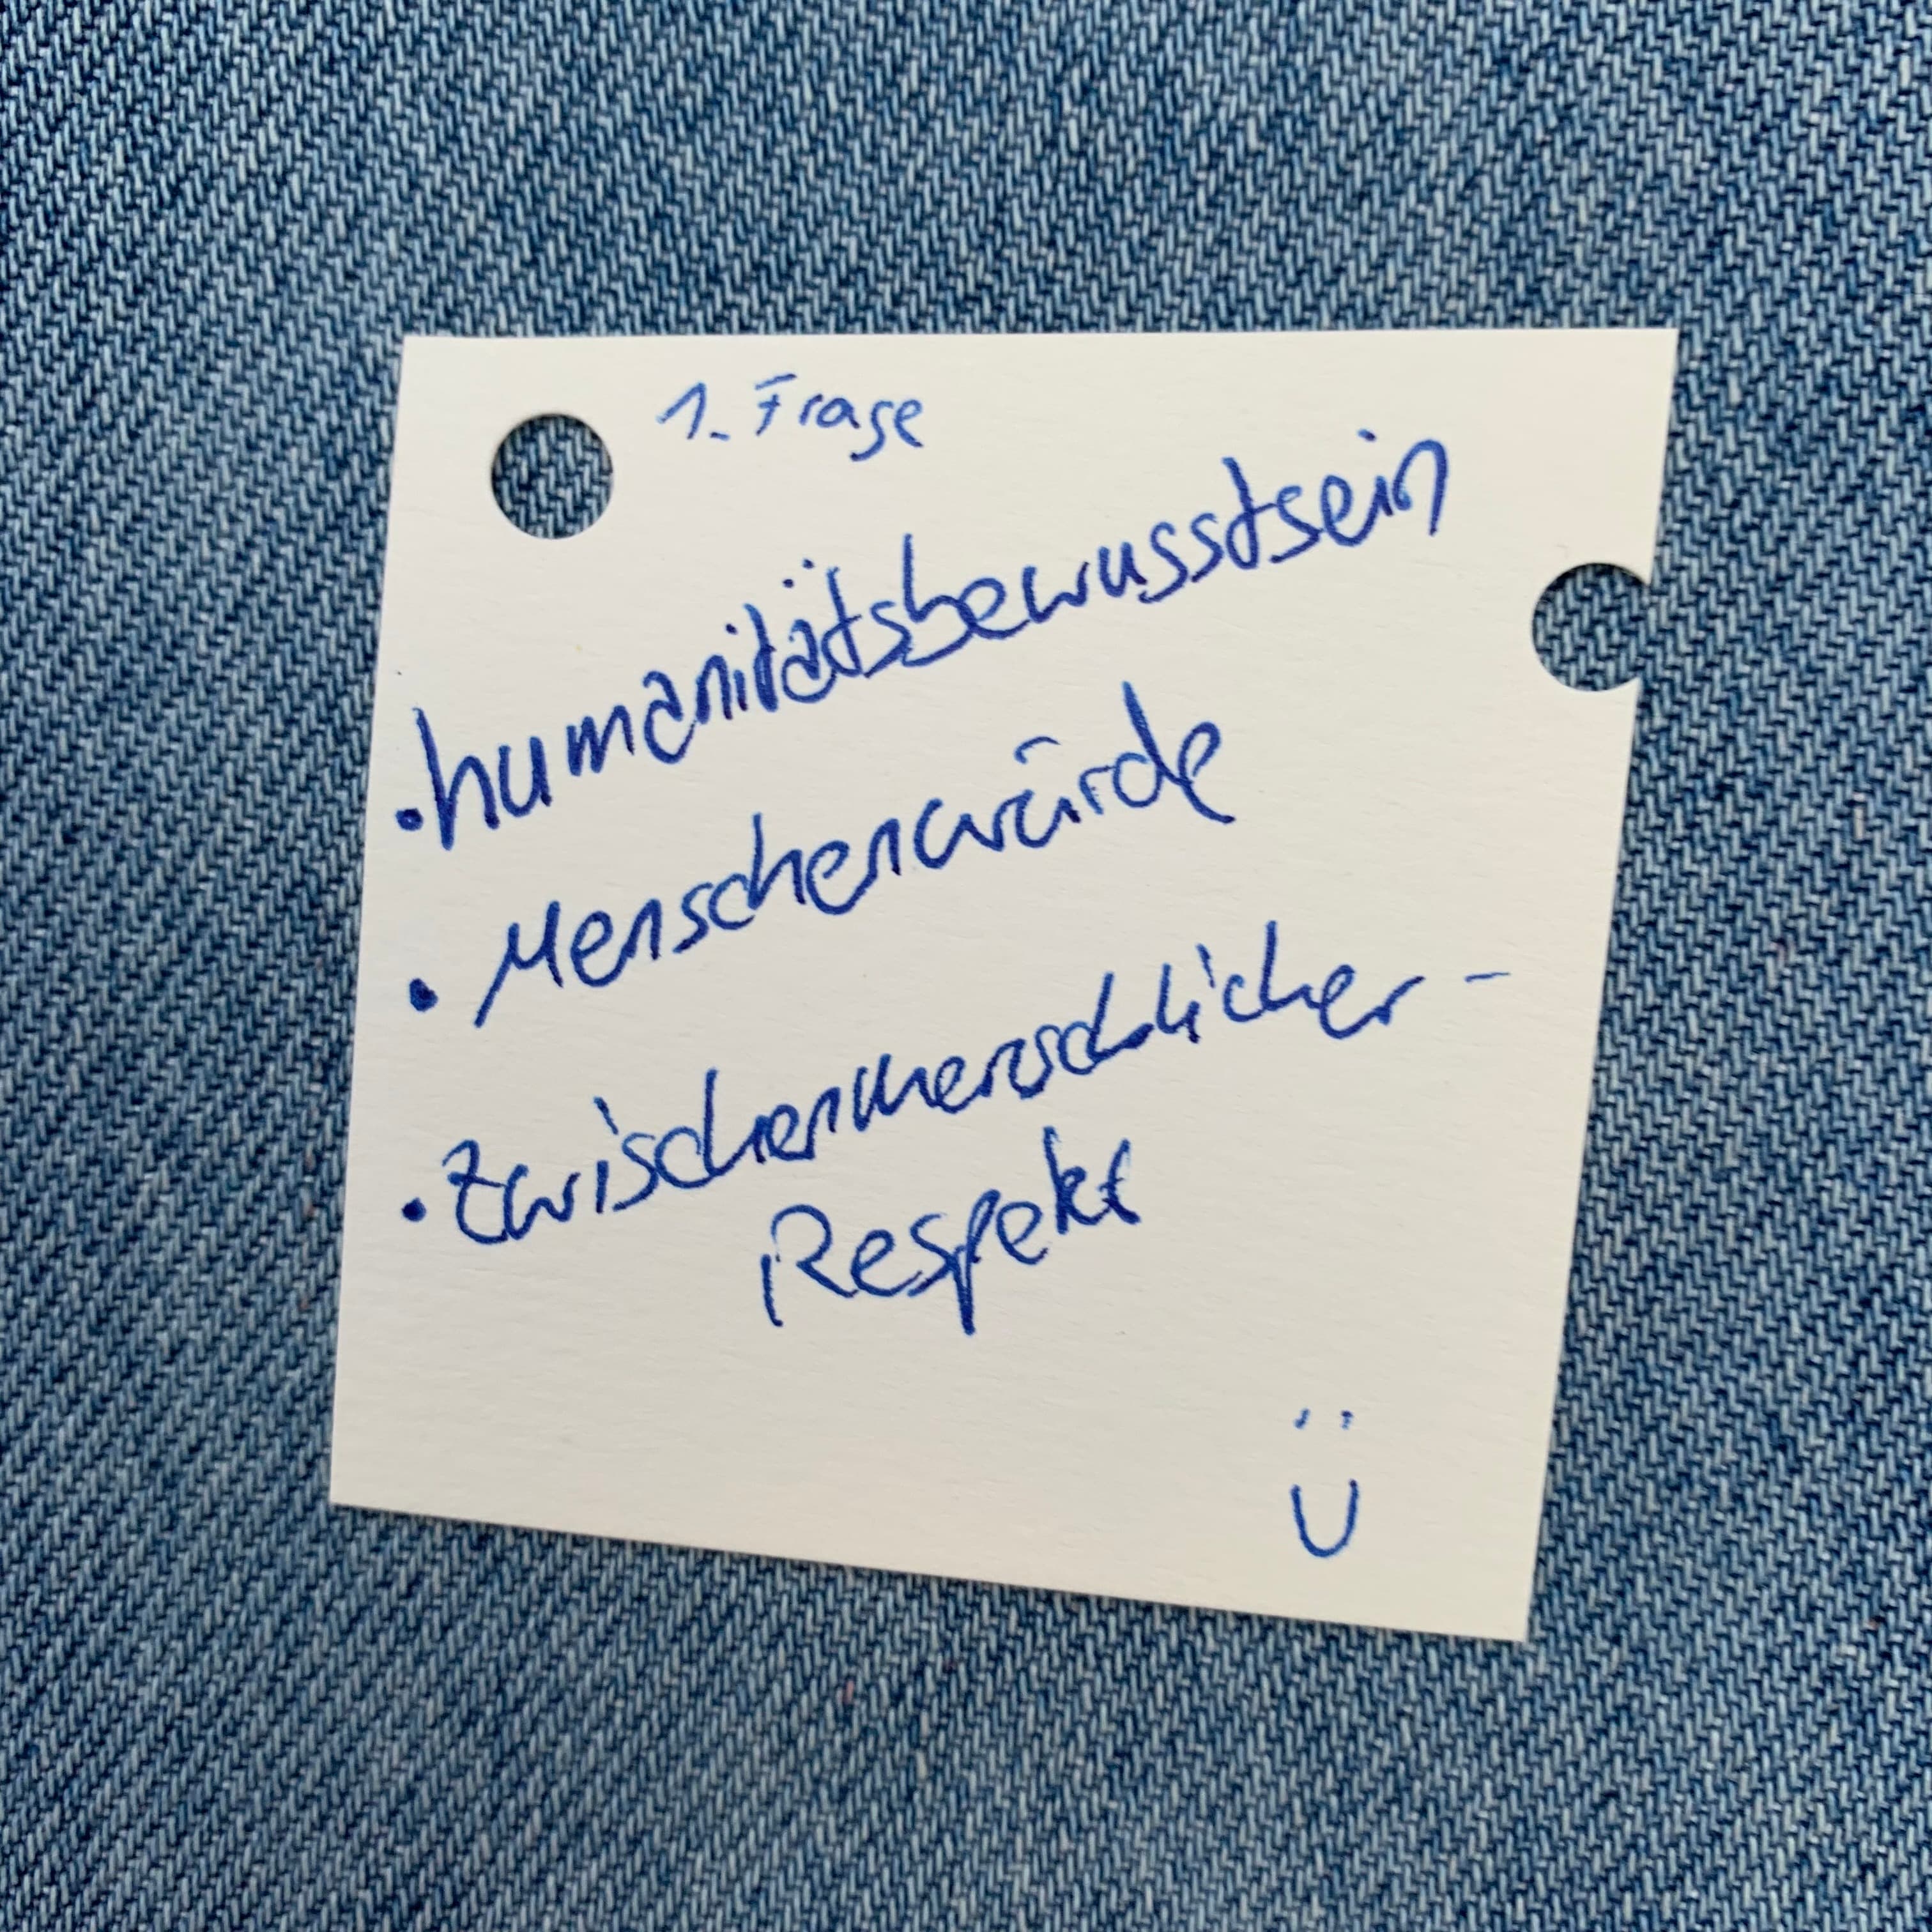 1. Frage
• humanitätsbewusstsein
• Menschenwürde
• Zwischenmenschlicher -
Respekt